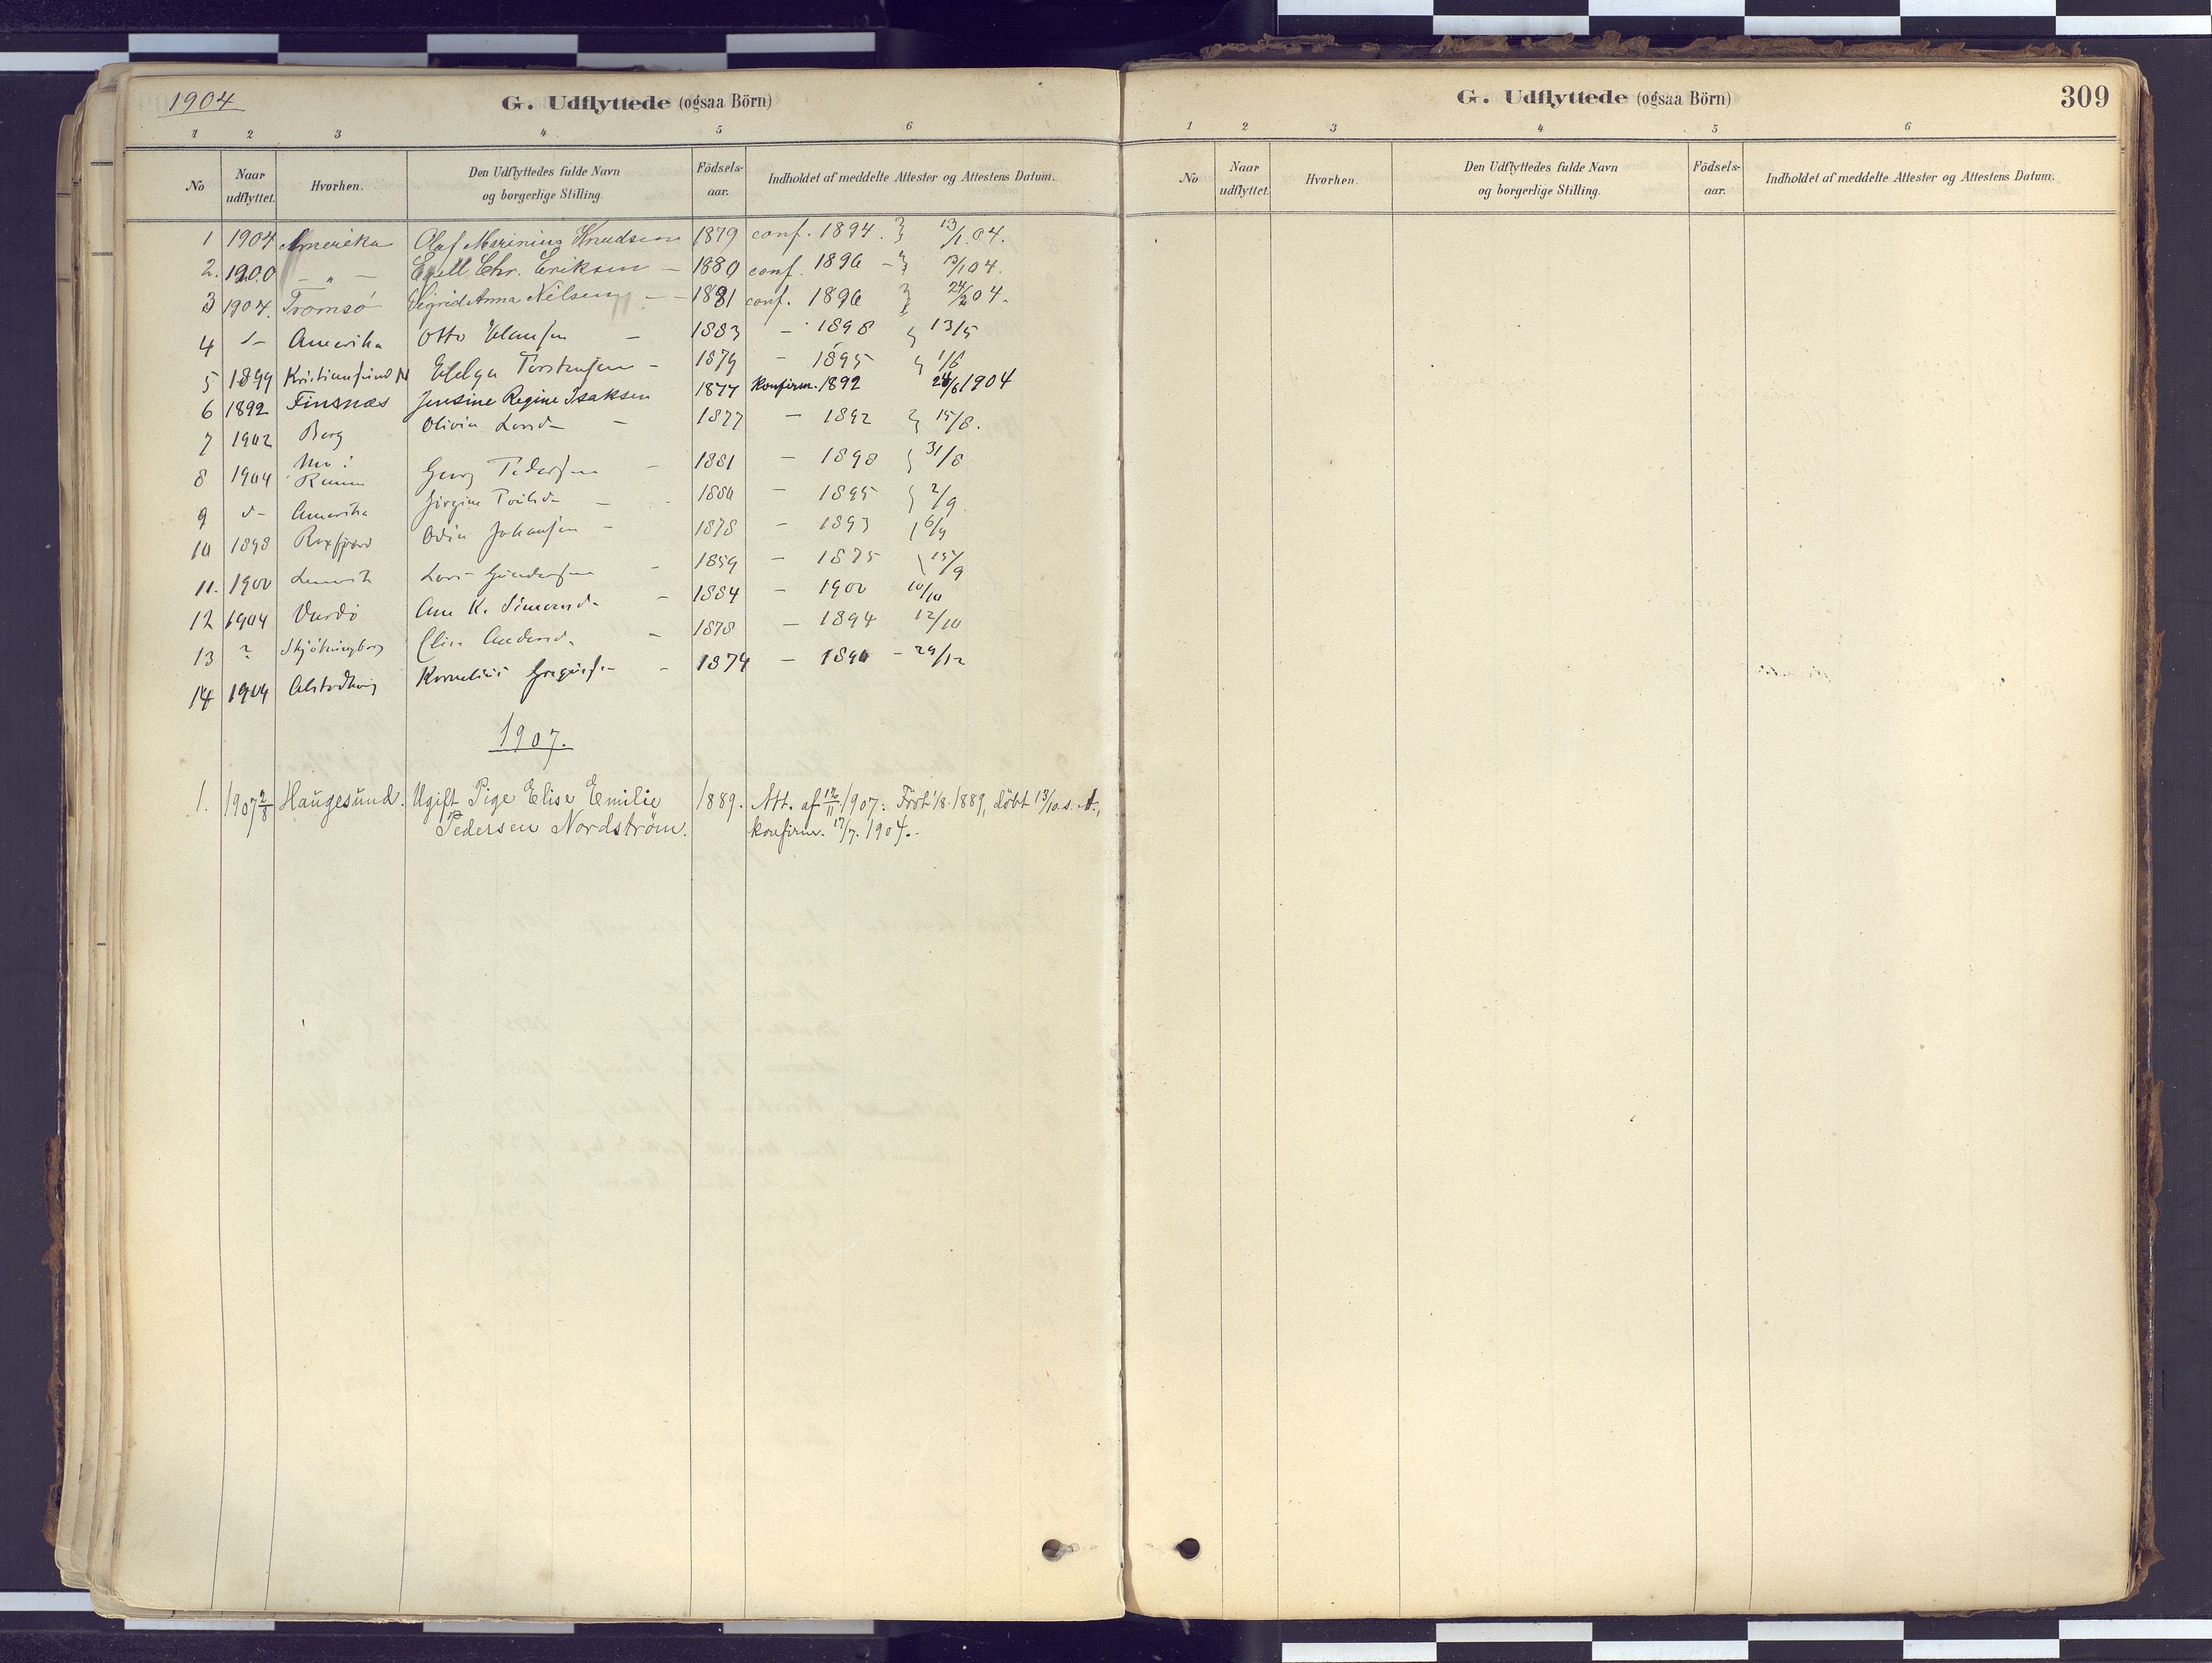 1904
G. Udflyttede (ogsaa Börn)
1 2 3 4 5 6
No
Naar udflyttet.
Hvorhen.
Den Udflyttedes fulde Navn og borgerlige Stilling.
Födsels-aar.
Indholdet af meddelte Attester og Attestens Datum.
1 1904 Amerika Olaf Marinius Knudsen 1879 conf. 1894. 13/1 04.
2. 1900 – „ – Egell Chr. Eriksen – 1880 conf. 1896 – 13/1 04.
3 1904. Tromsö Sigrid Anna Nilsen – 1881 conf. 1896 24/2 04.
4 d– Amerika Otto – 1883 – 1898 13/5
5 1899 Kristiansund N Helga Torstensen – 1879 – 1895 1/6
6 1892 Finsnæs Jensine Regine Isaksen 1877 Konfirm. 1892 24/6 1904
7 1902 Berg Olivia – 1877 – 1892 15/8.
8 1904 Mo i Ranen Georg Pedersen – 1881 – 1898 31/8
9 d– Amerika – 1880 – 1895 2/9.
10 1898 Odin Johansen – 1878 – 1893 6/9
11. 1900 Lenvik – 1859 – 1875 15/9
12 1904 Vardö Ane K. Simonsd. – 1884 – 1900 10/10
13 ? Elin Andersd. – 1878 – 1894 12/10
14 1904 Alstadhoug Kornelius – 1874 – 1890 – 29/12
1907.
1. 1907 2/8 Haugesund. Ugift Pige Elise Emilie 1889. Att. af 12/11 1907: Föst 1/8 1889, döbt 13/10 s. A.,
Pedersen Nordström. konfirm. 17/7. 1904.
G. Udflyttede (ogsaa Börn)
309
1 2 3 4 5 6
No
Naar udflyttet.
Hvorhen.
Den Udflyttedes fulde Navn og borgerlige Stilling.
Födsels-aar.
Indholdet af meddelte Attester og Attestens Datum.